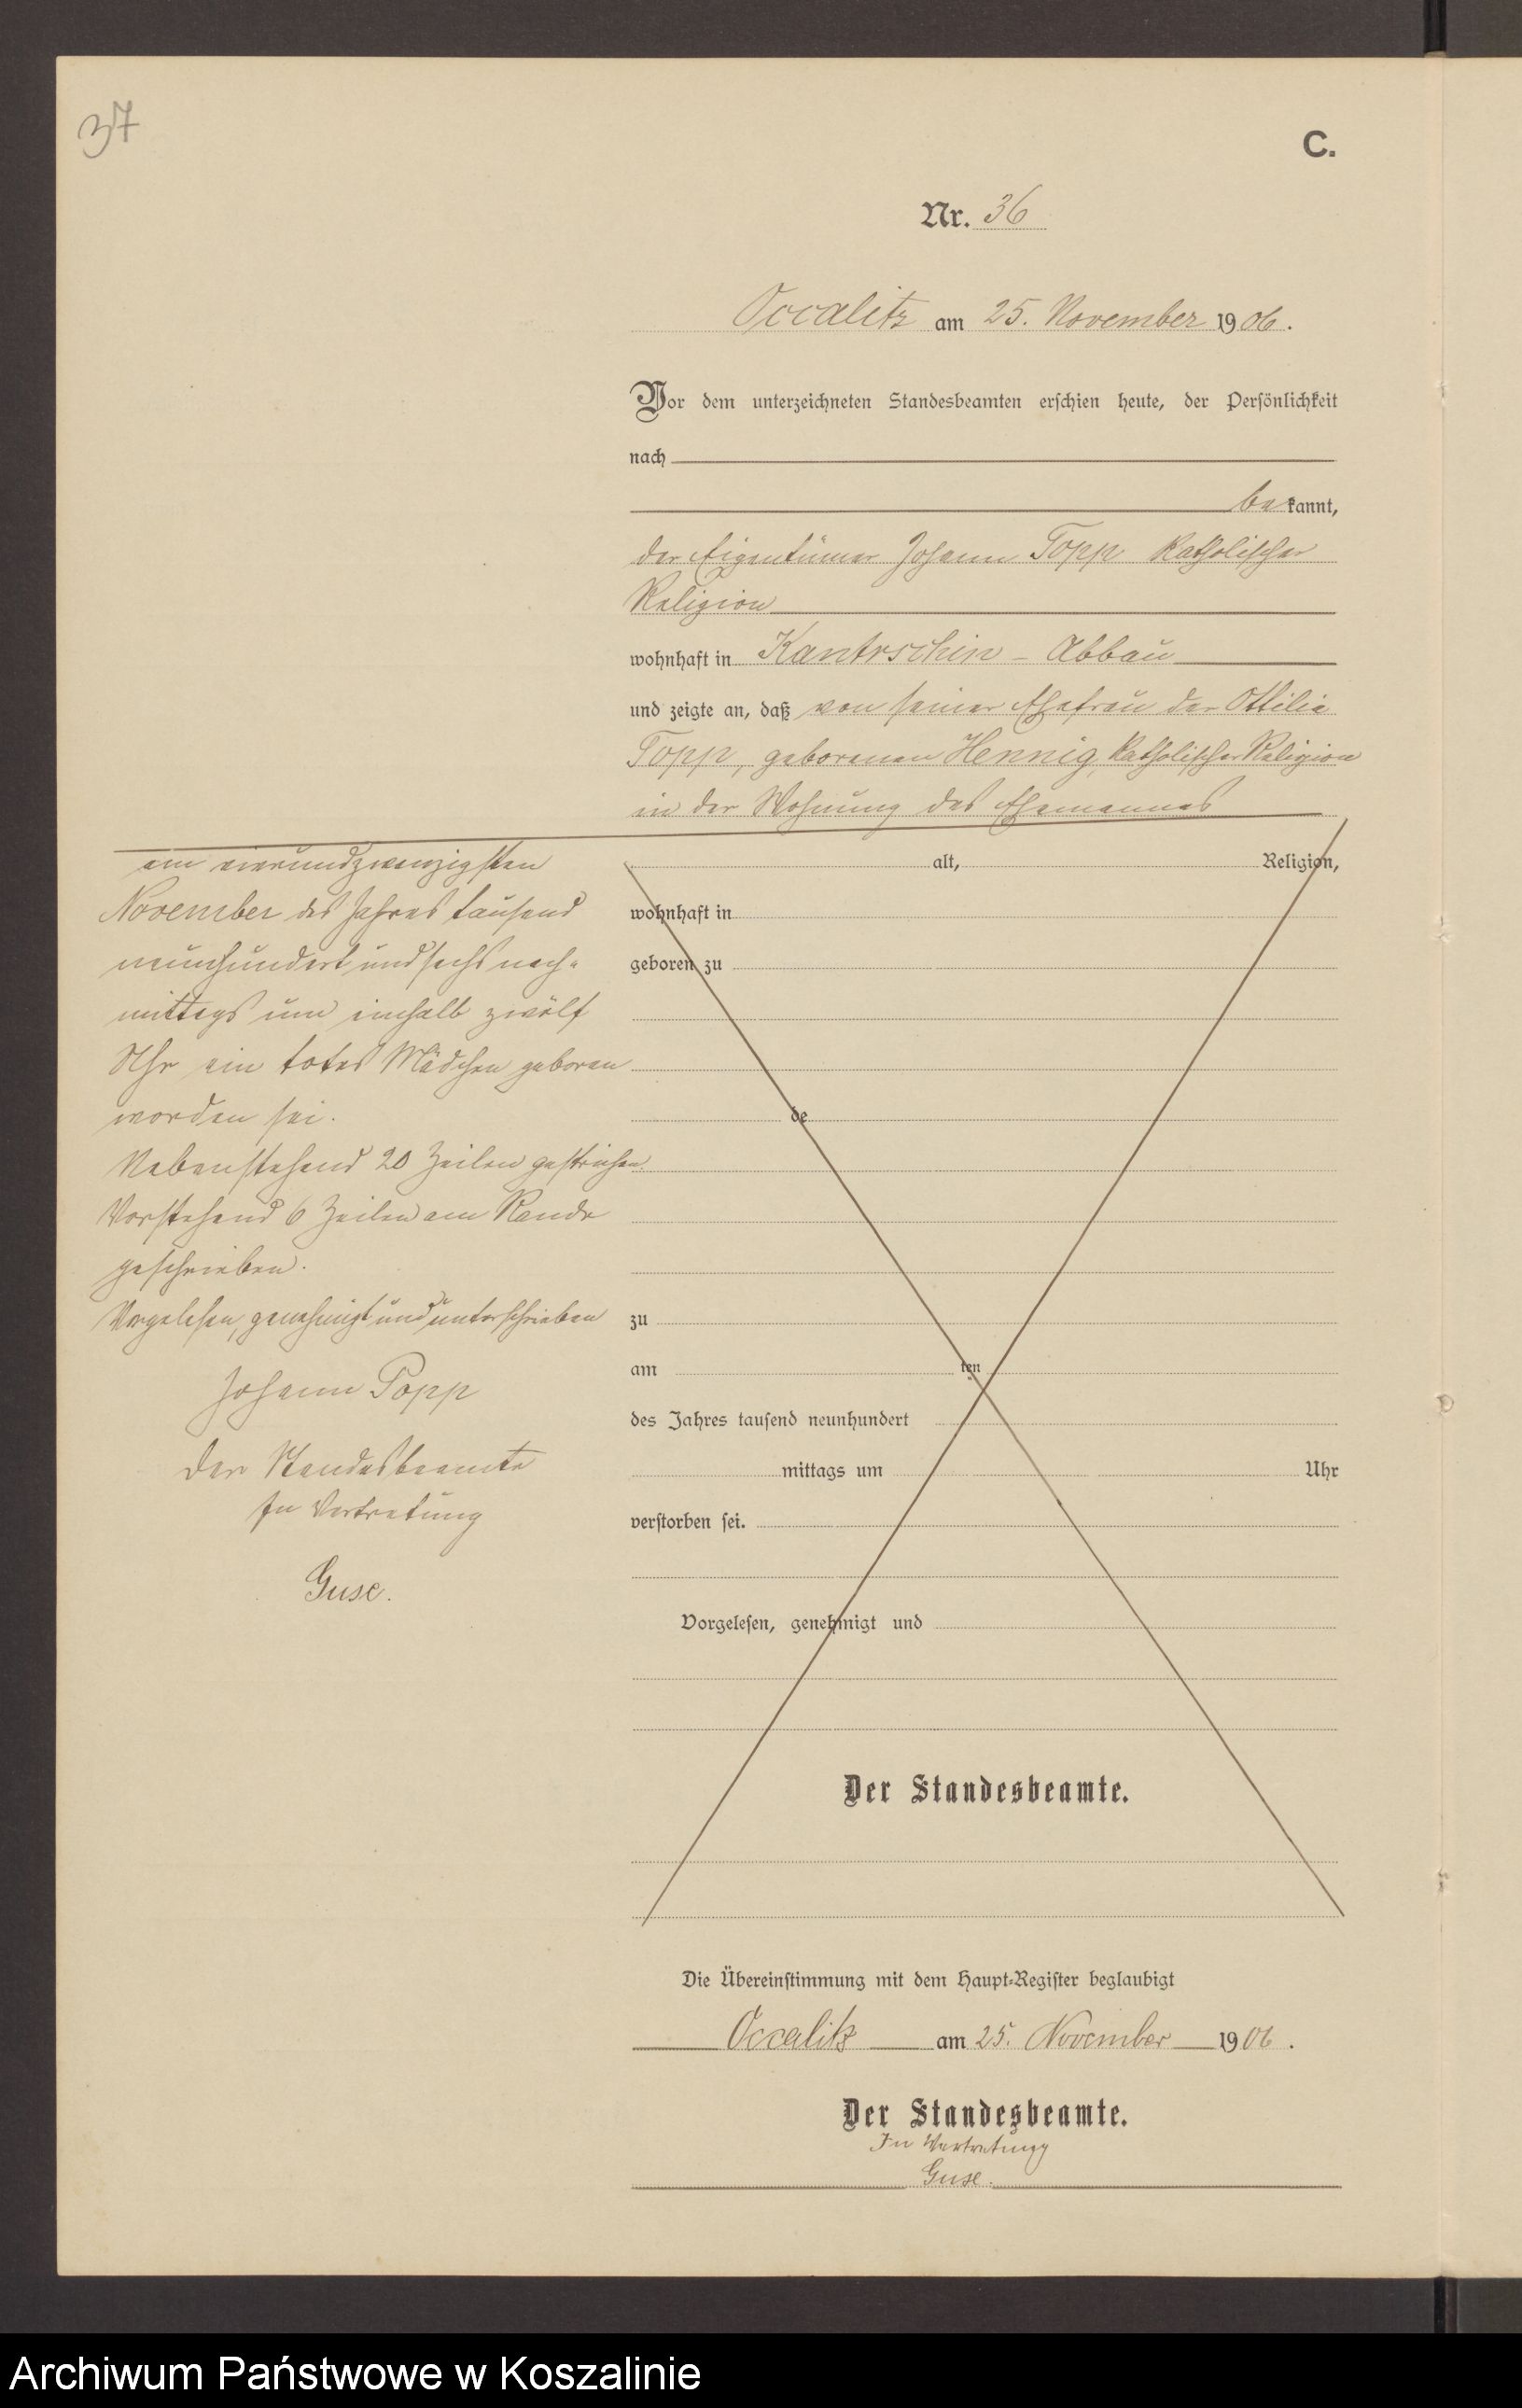 37
C.
Nr. 36
Occalitz am 25. November 1906.
Vor dem unterzeichneten Standesbeamten erschien heute, der Persönlichkeit
nach
bekannt,
der Eigentümer Johann Topp katholischer
Religion
wohnhaft in Kantrschin - Abbau
und zeigte an, daß von seiner Ehefrau der Ottilie
Topp, geborenen Hennig, katholischer Religion
in der Wohnung des Ehemannes
am vierundzwanzigsten
November des Jahres tausend
neunhundert und sechs nach-
mittags um einhalb zwölf
Uhr ein totes Mädchen geboren
worden sei.
Nebenstehend 20 Zeilen gestrichen
Vorstehend 6 Zeilen am Rande
geschrieben.
Vorgelesen, genehmigt und unterschrieben
Johann Popp
Der Standesbeamte
In Vertretung
Guse.
alt, Religion,
wohnhaft in
geboren zu
de
zu
am ten
des Jahres tausend neunhundert
mittags um Uhr
verstorben sei.
Vorgelesen, genehmigt und
Der Standesbeamte.
Die Übereinstimmung mit dem Haupt-Register beglaubigt
Occalitz am 25. November 1906.
Der Standesbeamte.
In Vertretung
Guse.
Archiwum Państwowe w Koszalinie